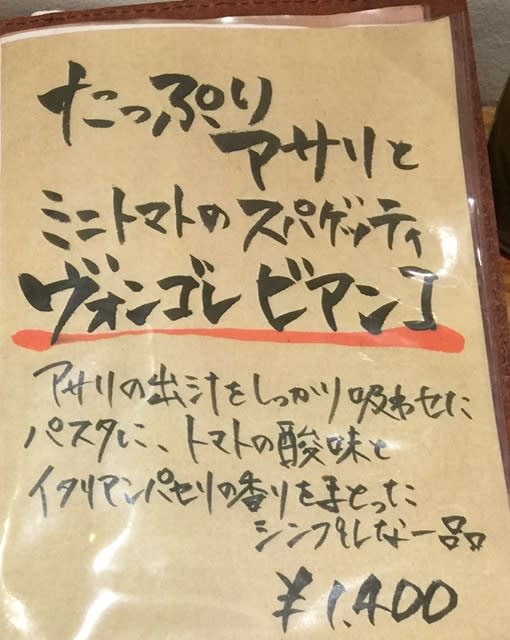 たっぷり
アサリと
ミニトマトのスパゲッティ
ヴォンゴレ ビアンコ
アサリの出汁をしっかり吸わせた
パスタに、トマトの酸味と
イタリアンパセリの香りをまとった
シンプルな一品
¥1,400